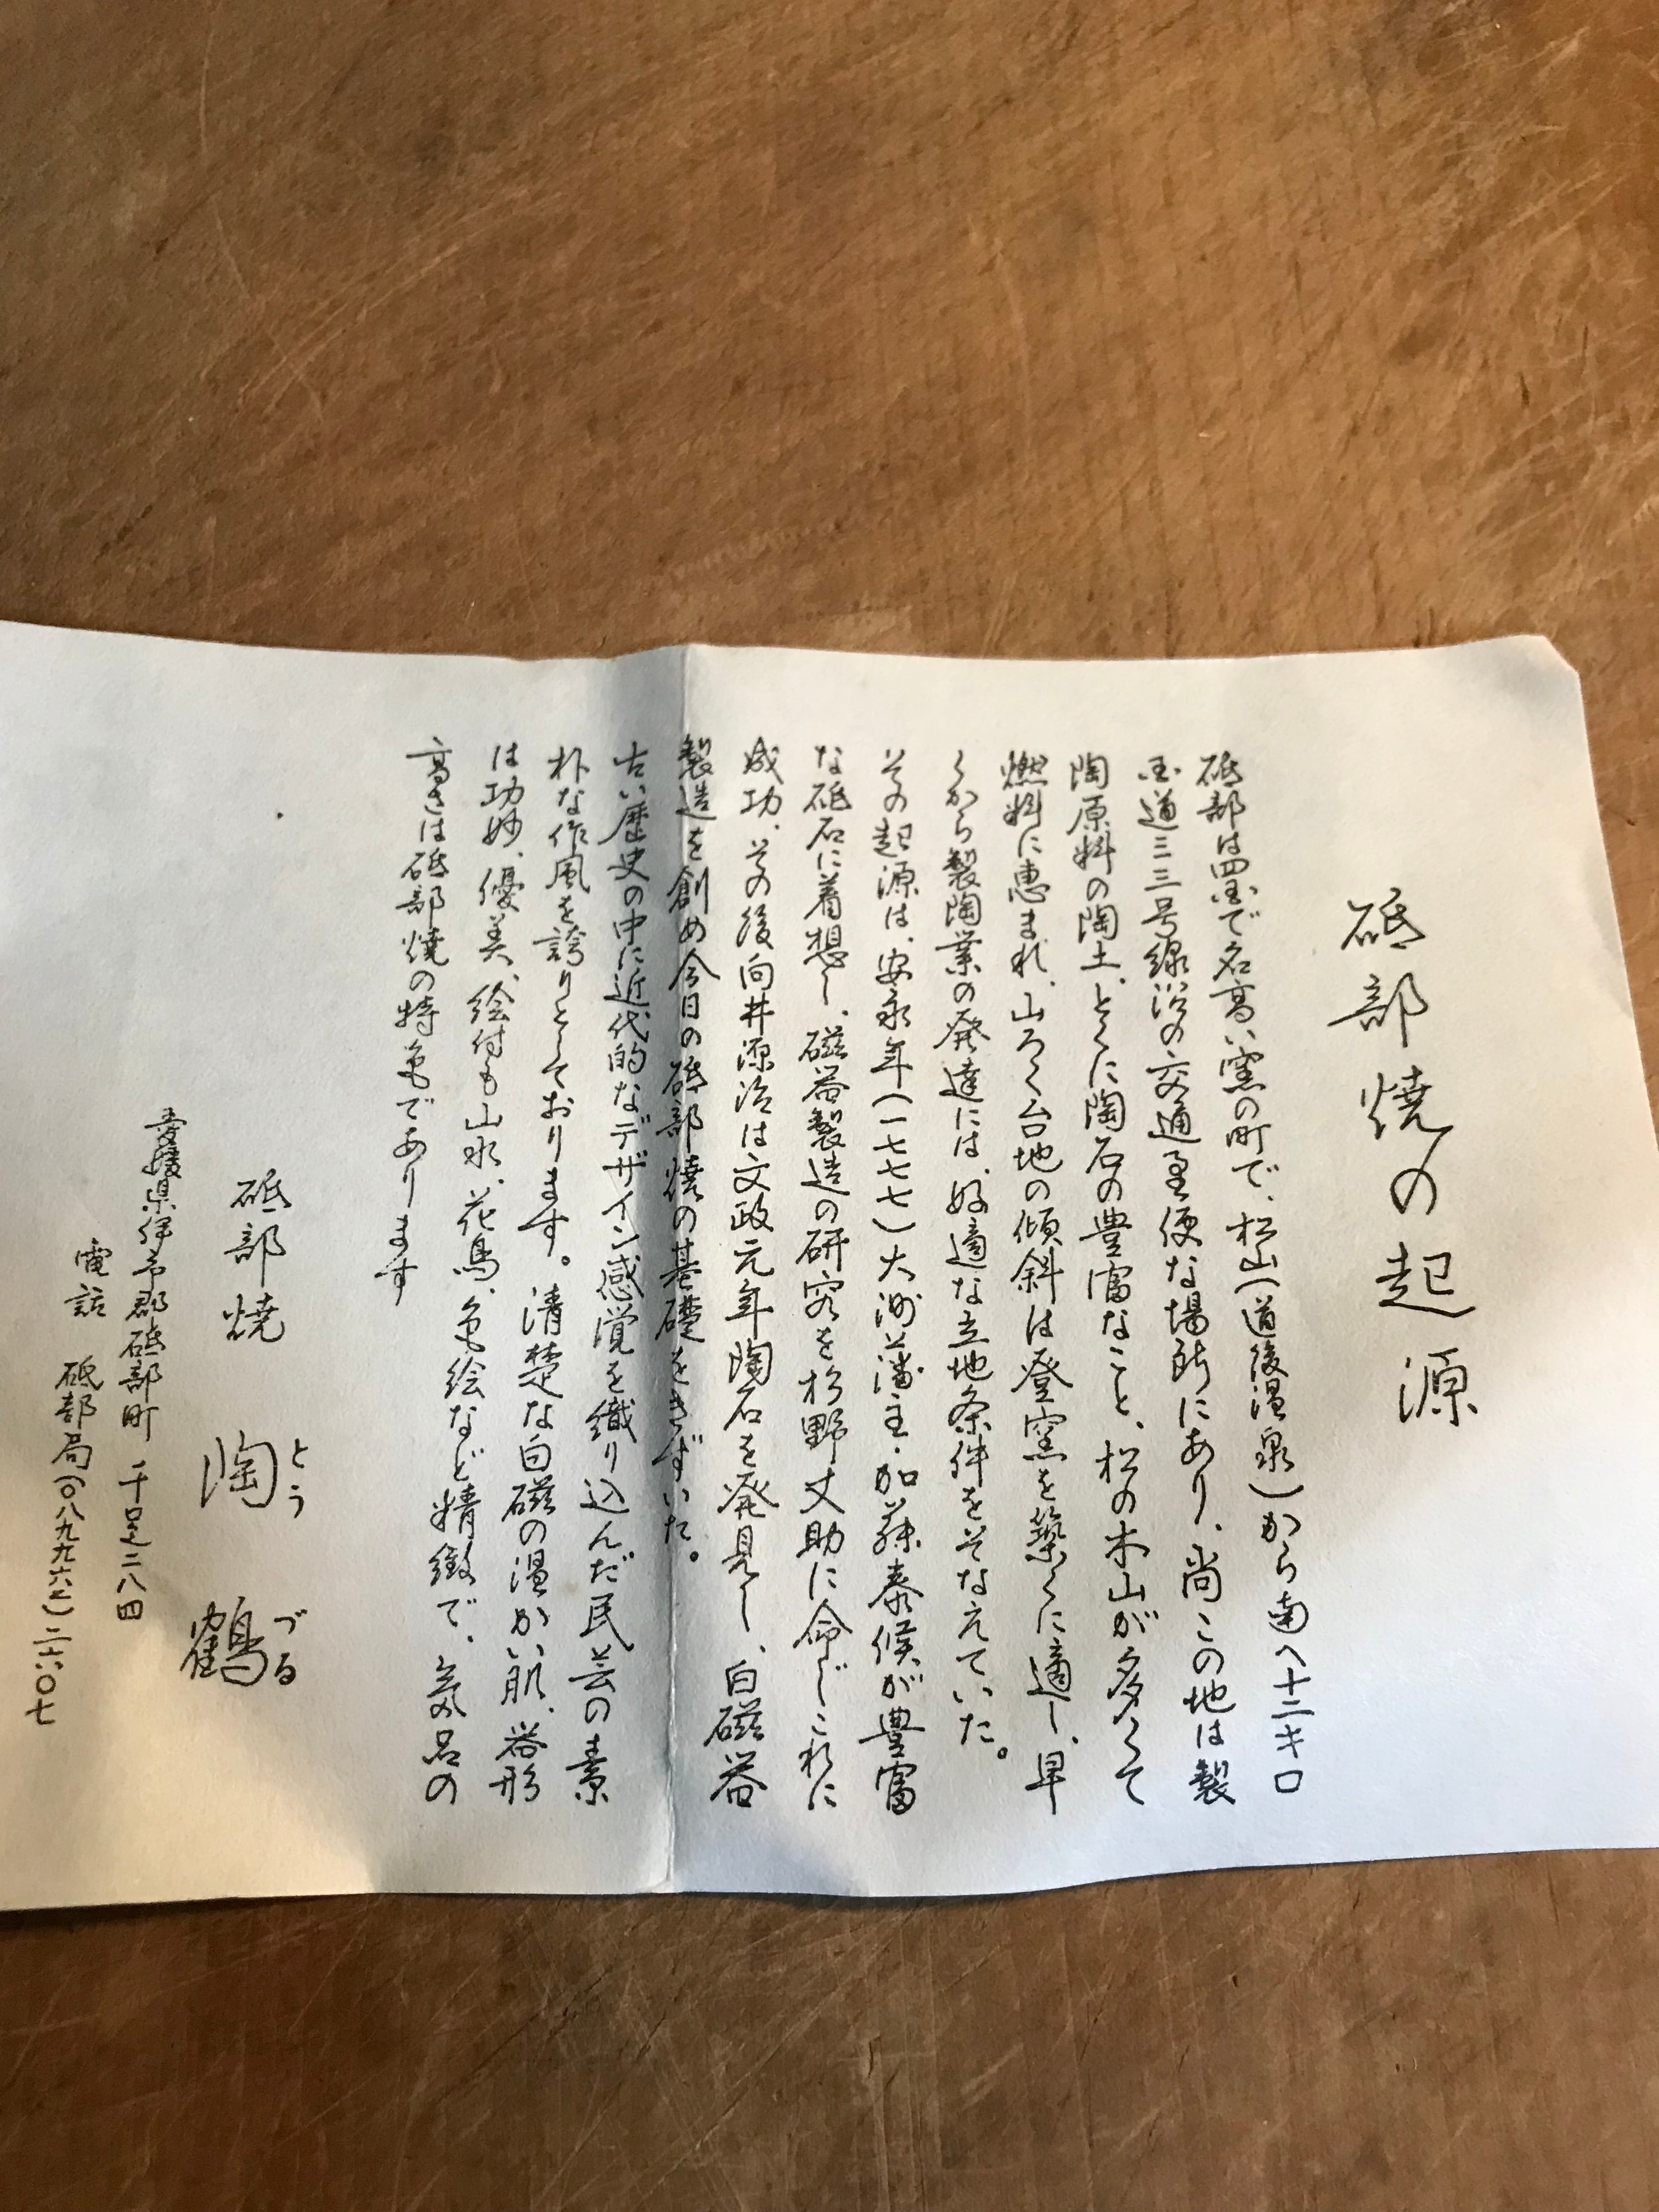 砥部焼の起源
砥部は四国で名高い窯の町で、松山(道後温泉)から南へ十二キロ
国道三三号線沿の交通至便な場所にあり、尚この地は製
陶原料の陶土、とくに陶石の豊富なこと、松の木山が多くて
燃料に恵まれ、山ろく台地の傾斜は登窯を築くに適し、早
くから製陶業の発達には、好適な立地条件をそなえていた。
その起源は、安永年(一七七七)大洲藩主・加藤泰候が豊富
な砥石に着想し、磁器製造の研究を杉野丈助に命じこれに
成功、その後向井源治は文政元年陶石を発見し、白磁器
製造を創め今日の砥部焼の基礎をきずいた。
古い歴史の中に近代的なデザイン感覚を織り込んだ民芸の素
朴な作風を誇りとしております。清楚な白磁の温かい肌、器形
は功妙、優美、絵付も山水、花鳥、色絵など精緻で、気品の
高さは砥部焼の特色であります
砥部焼 陶鶴
とうづる
愛媛県伊予郡砥部町千足二八四
電話 砥部局(〇八九九六二)二六〇七